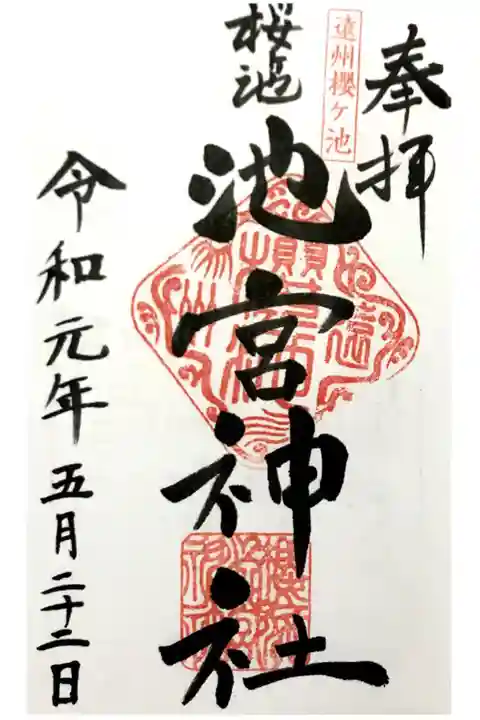 奉拝
遠州櫻ヶ池
桜池
池宮神社
令和元年五月二十二日